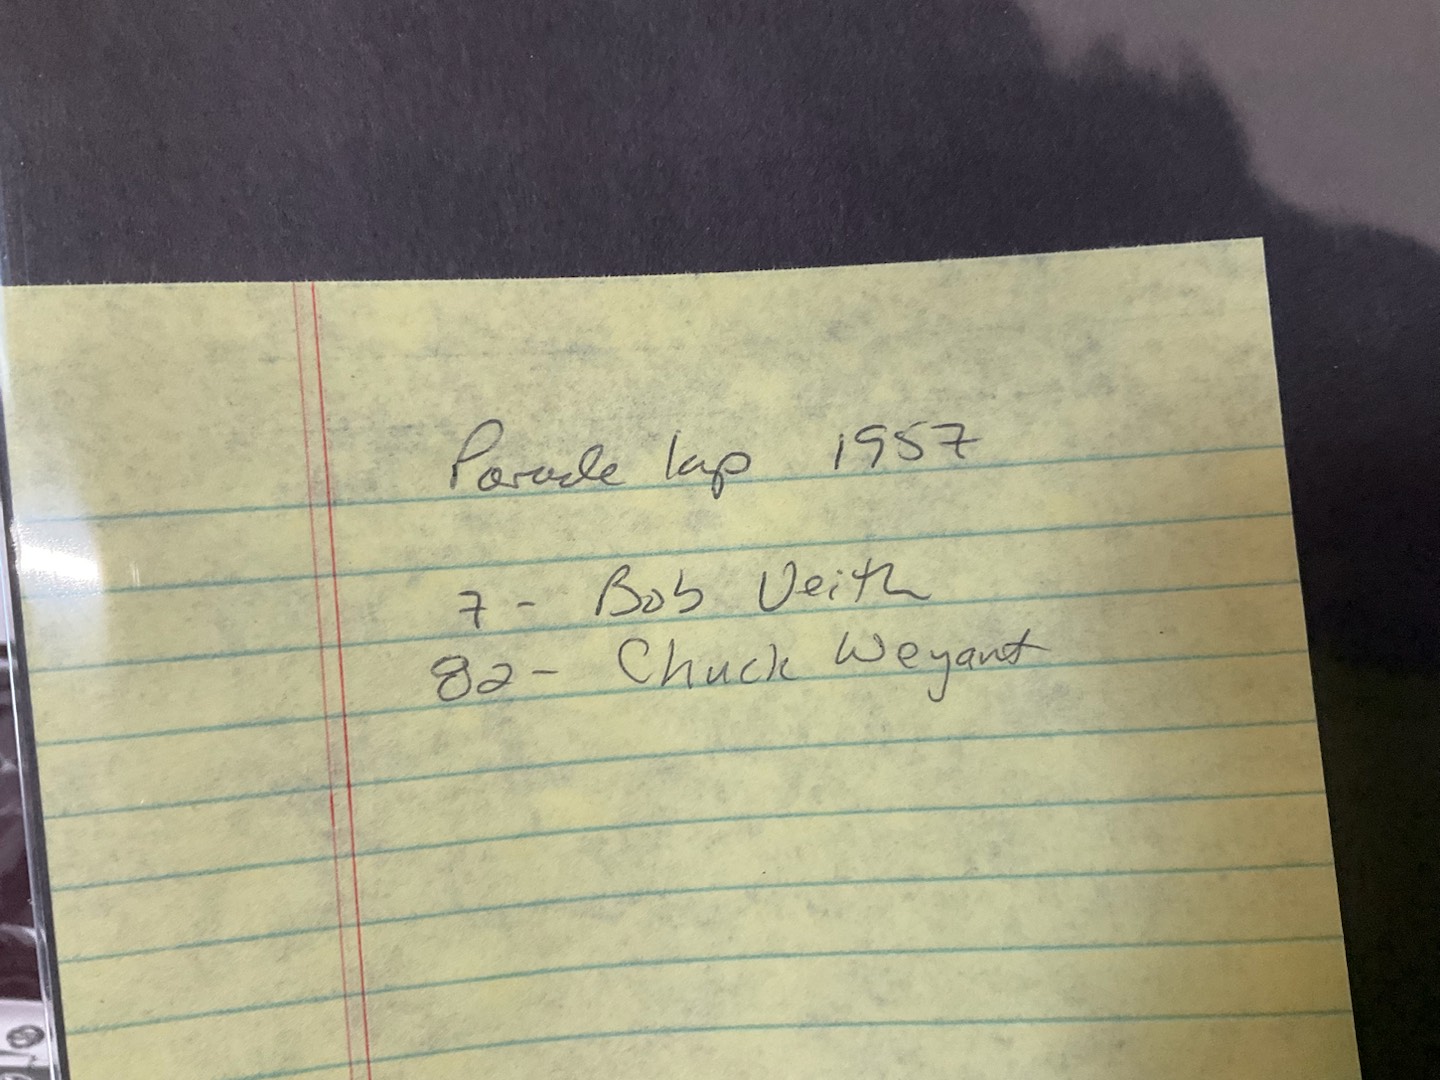 Parade lap 1957
7 - Bob Veith
82 - Chuck Weyant